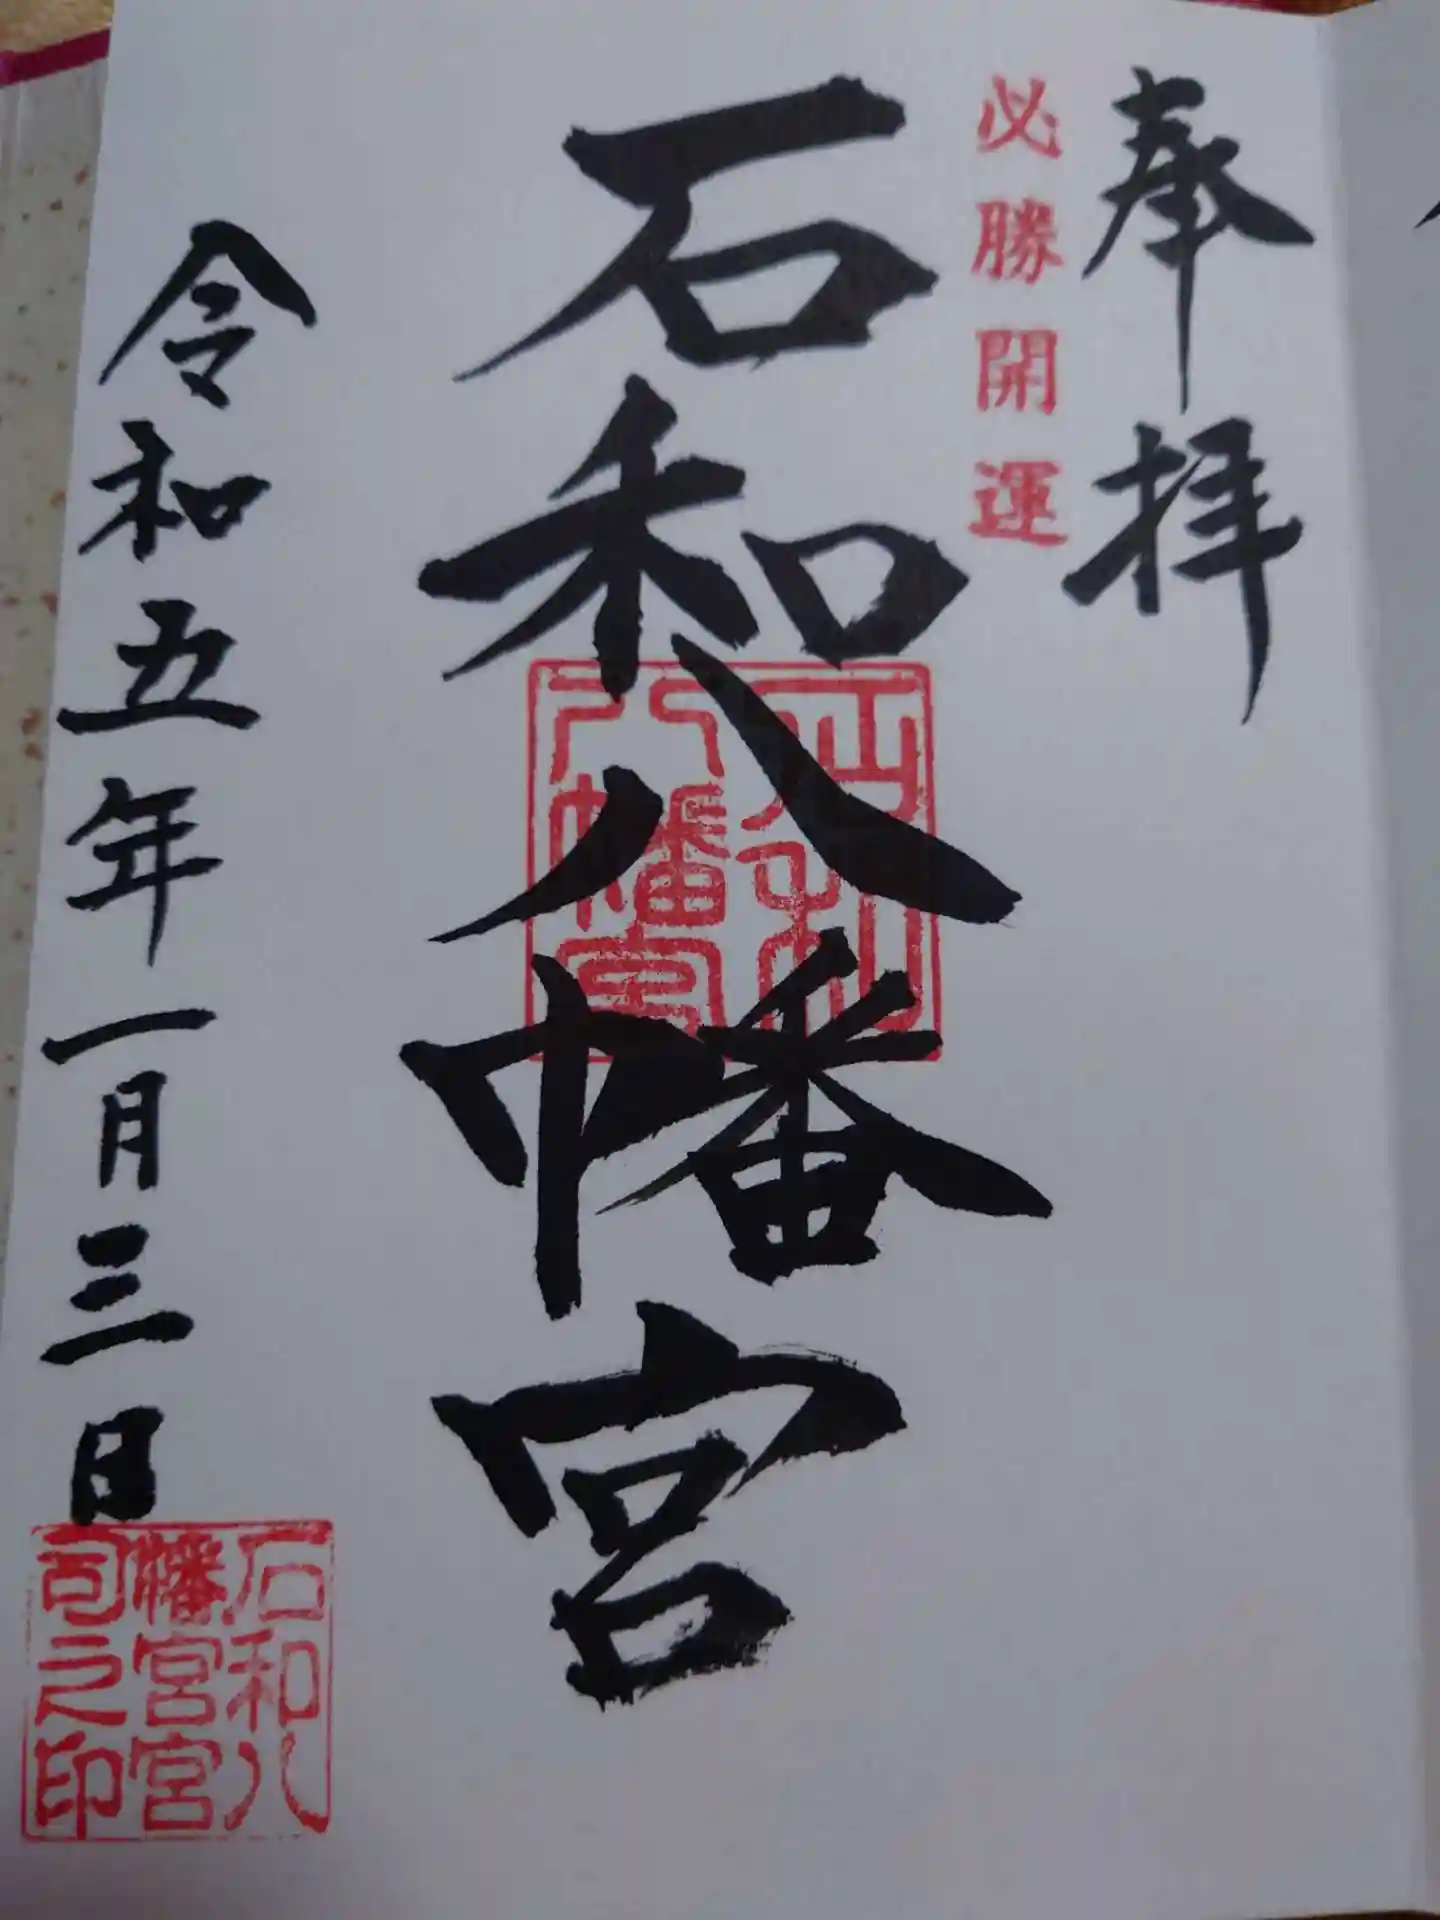 奉拝
必勝開運
石和八幡宮
石和八幡宮
令和五年一月三日
石和八
幡宮宮
司之印